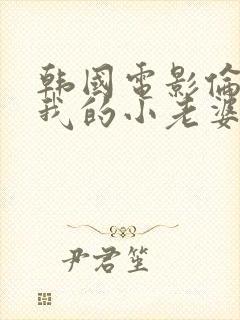 韩國電影倫
我的小老婆
尹君笙